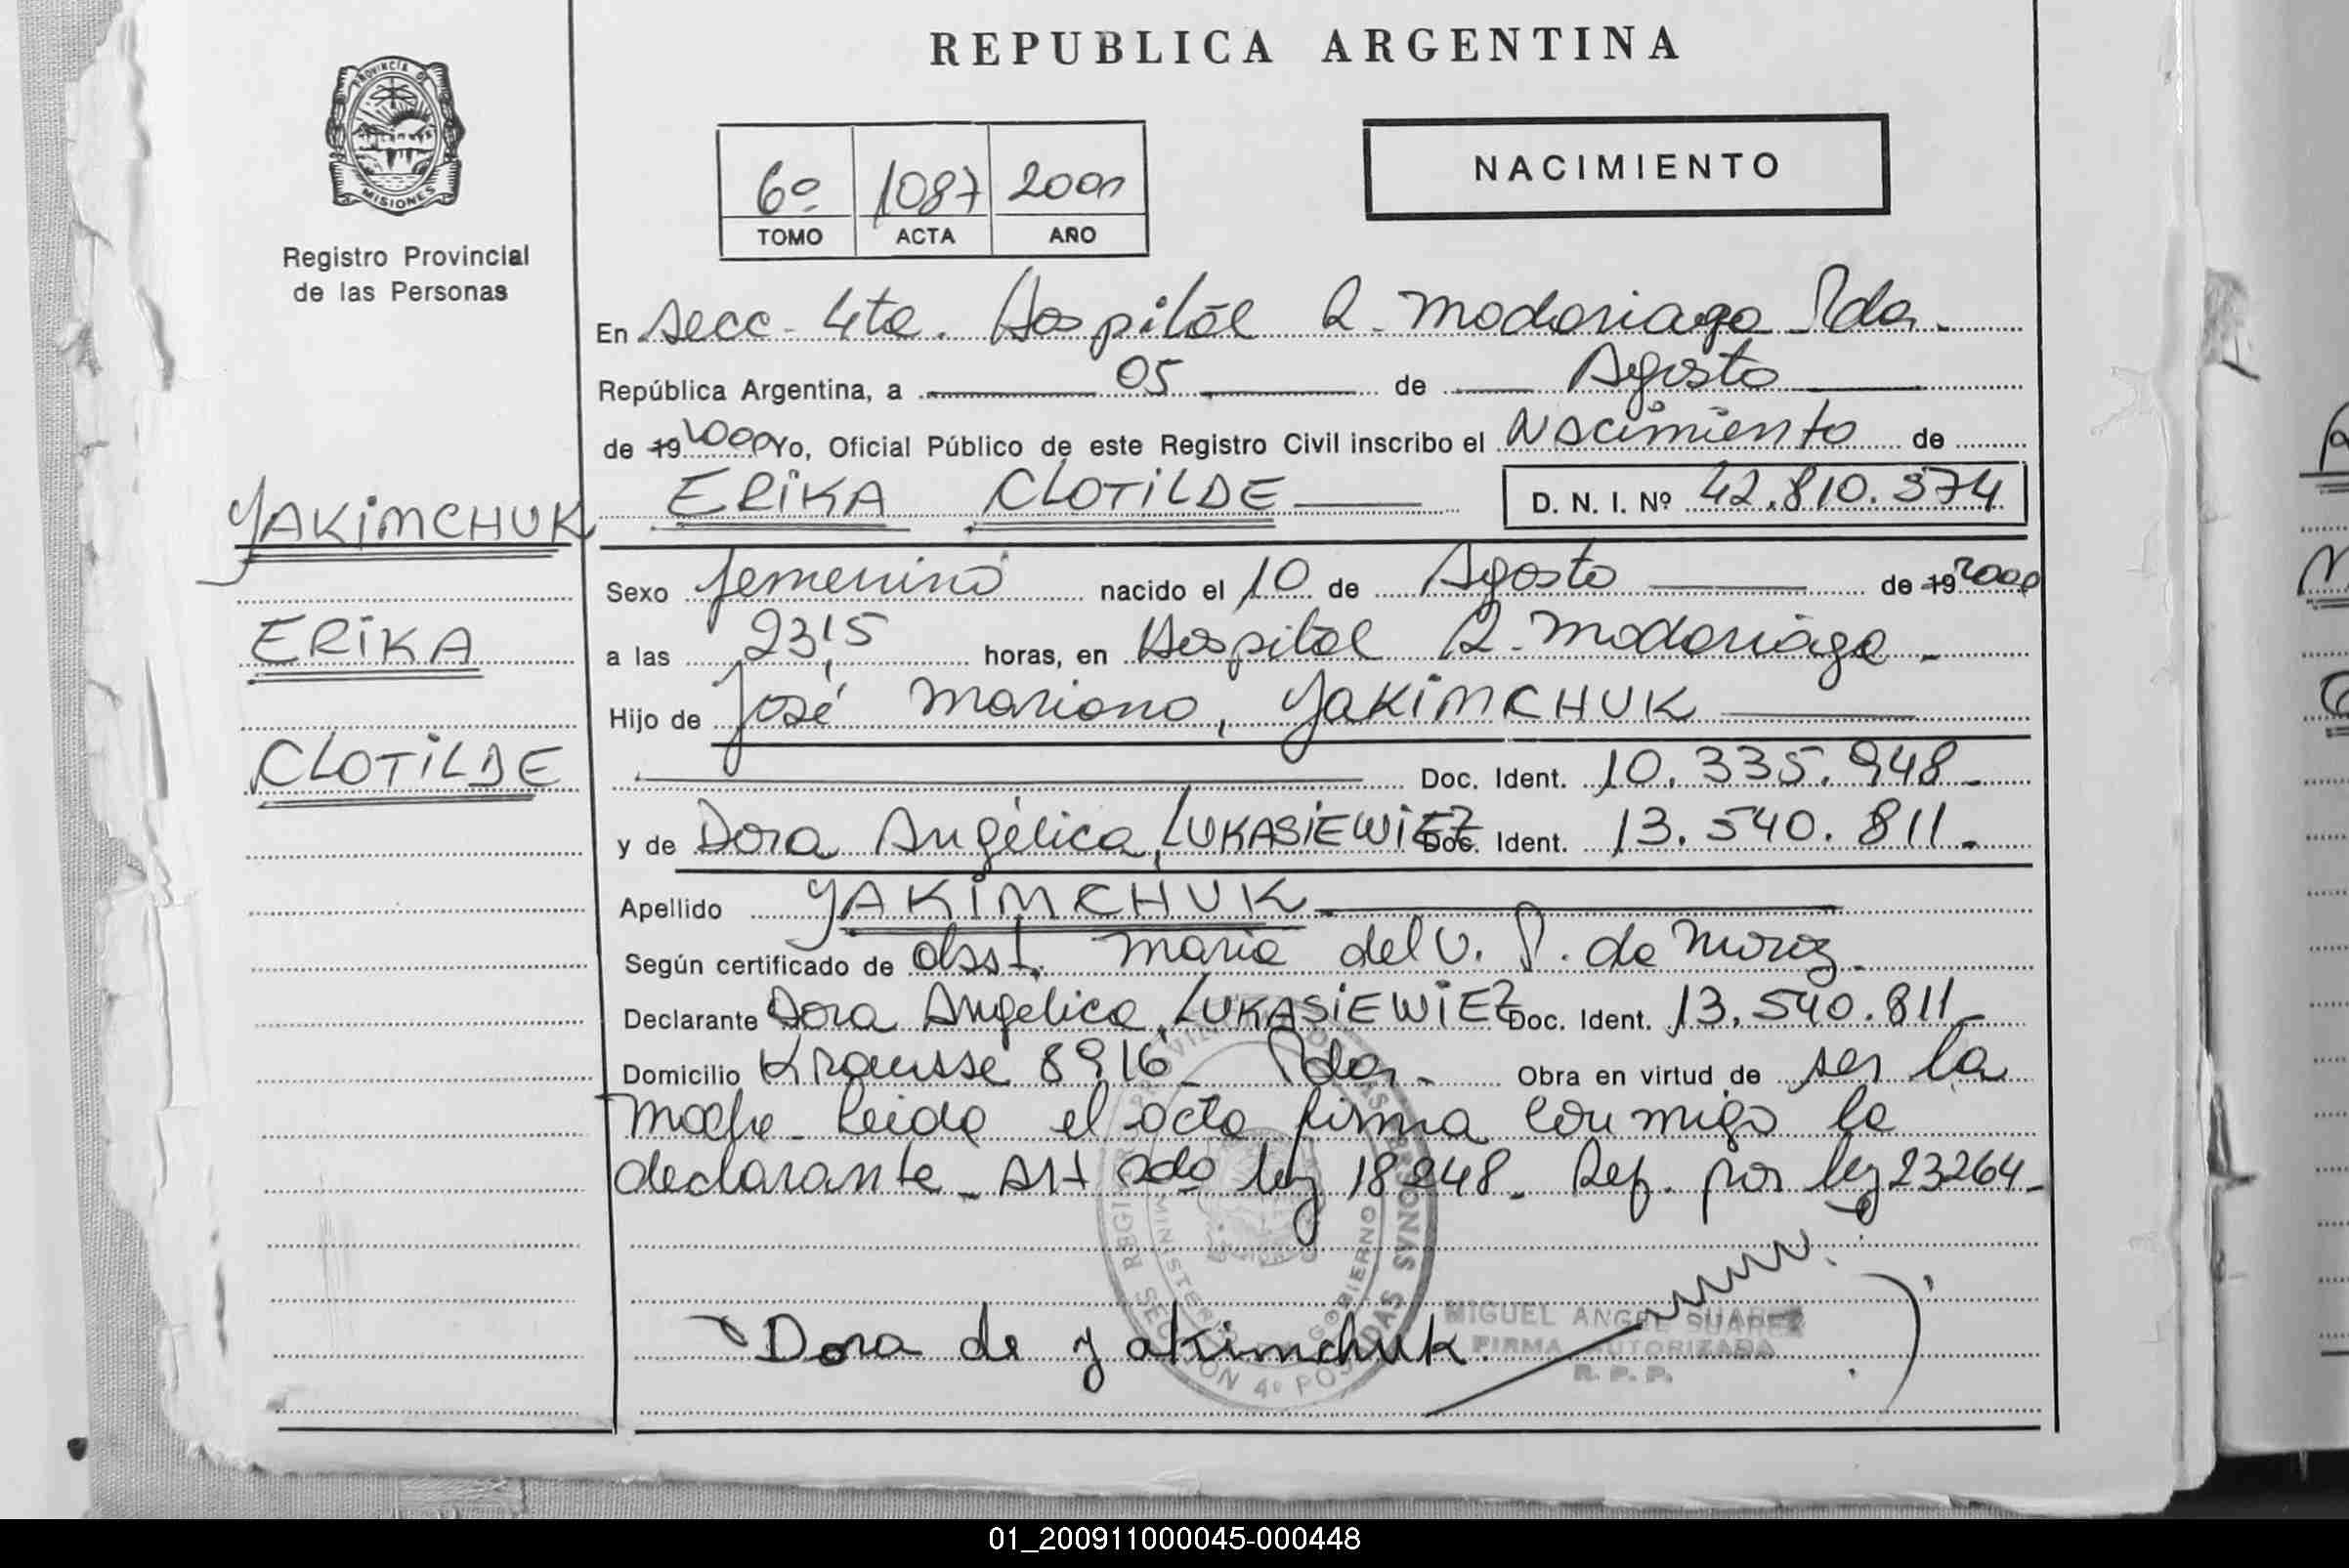 REPUBLICA ARGENTINA
PROVINCIA DE
MISIONES
Registro Provincial
de las Personas
NACIMIENTO
6º 1087 2001
TOMO ACTA AÑO
En secc. 4ta. Hospital R. Madariaga Pdas.
República Argentina, a 05 de Agosto
de 19 Yo, Oficial Público de este Registro Civil inscribo el Nacimiento de
ERIKA CLOTILDE D. N. I. Nº 42.810.374
YAKIMCHUK
ERIKA
CLOTILDE
Sexo femenino nacido el 10 de Agosto de 19 2000
a las 23,15 horas, en Hospital R. Madariaga.
Hijo de José Mariano, YAKIMCHUK
Doc. Ident. 10.335.948.
y de Dora Angélica, LUKASIEWIEZ Doc. Ident. 13.540.811.
Apellido YAKIMCHUK
Según certificado de obst. María del V. P. de
Declarante Dora Angélica, LUKASIEWIEZ Doc. Ident. 13.540.811
Domicilio Krausse 8916 Pdas. Obra en virtud de ser la
madre. Leida el acta firma conmigo la
declarante. Art 2do ley 18248. Ref. por ley 23264.
SECCION 4º POSADAS
MINISTERIO GOBIERNO
MIGUEL ANGEL SUAREZ
FIRMA AUTORIZADA
R. P. P.
Dora de yakimchuk.
01_200911000045-000448